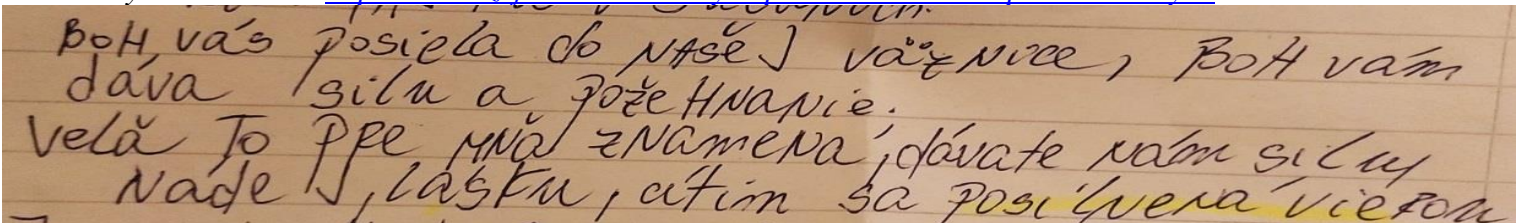 BOH vás posiela do NAŠEJ väzNice, BOH vám
dáva silu a požeHNANie.
Velǎ To PRE MNǎ zNAMENá, dávate NÁM silu
Nádej, lásku, cítim sa posilNeNá vierou